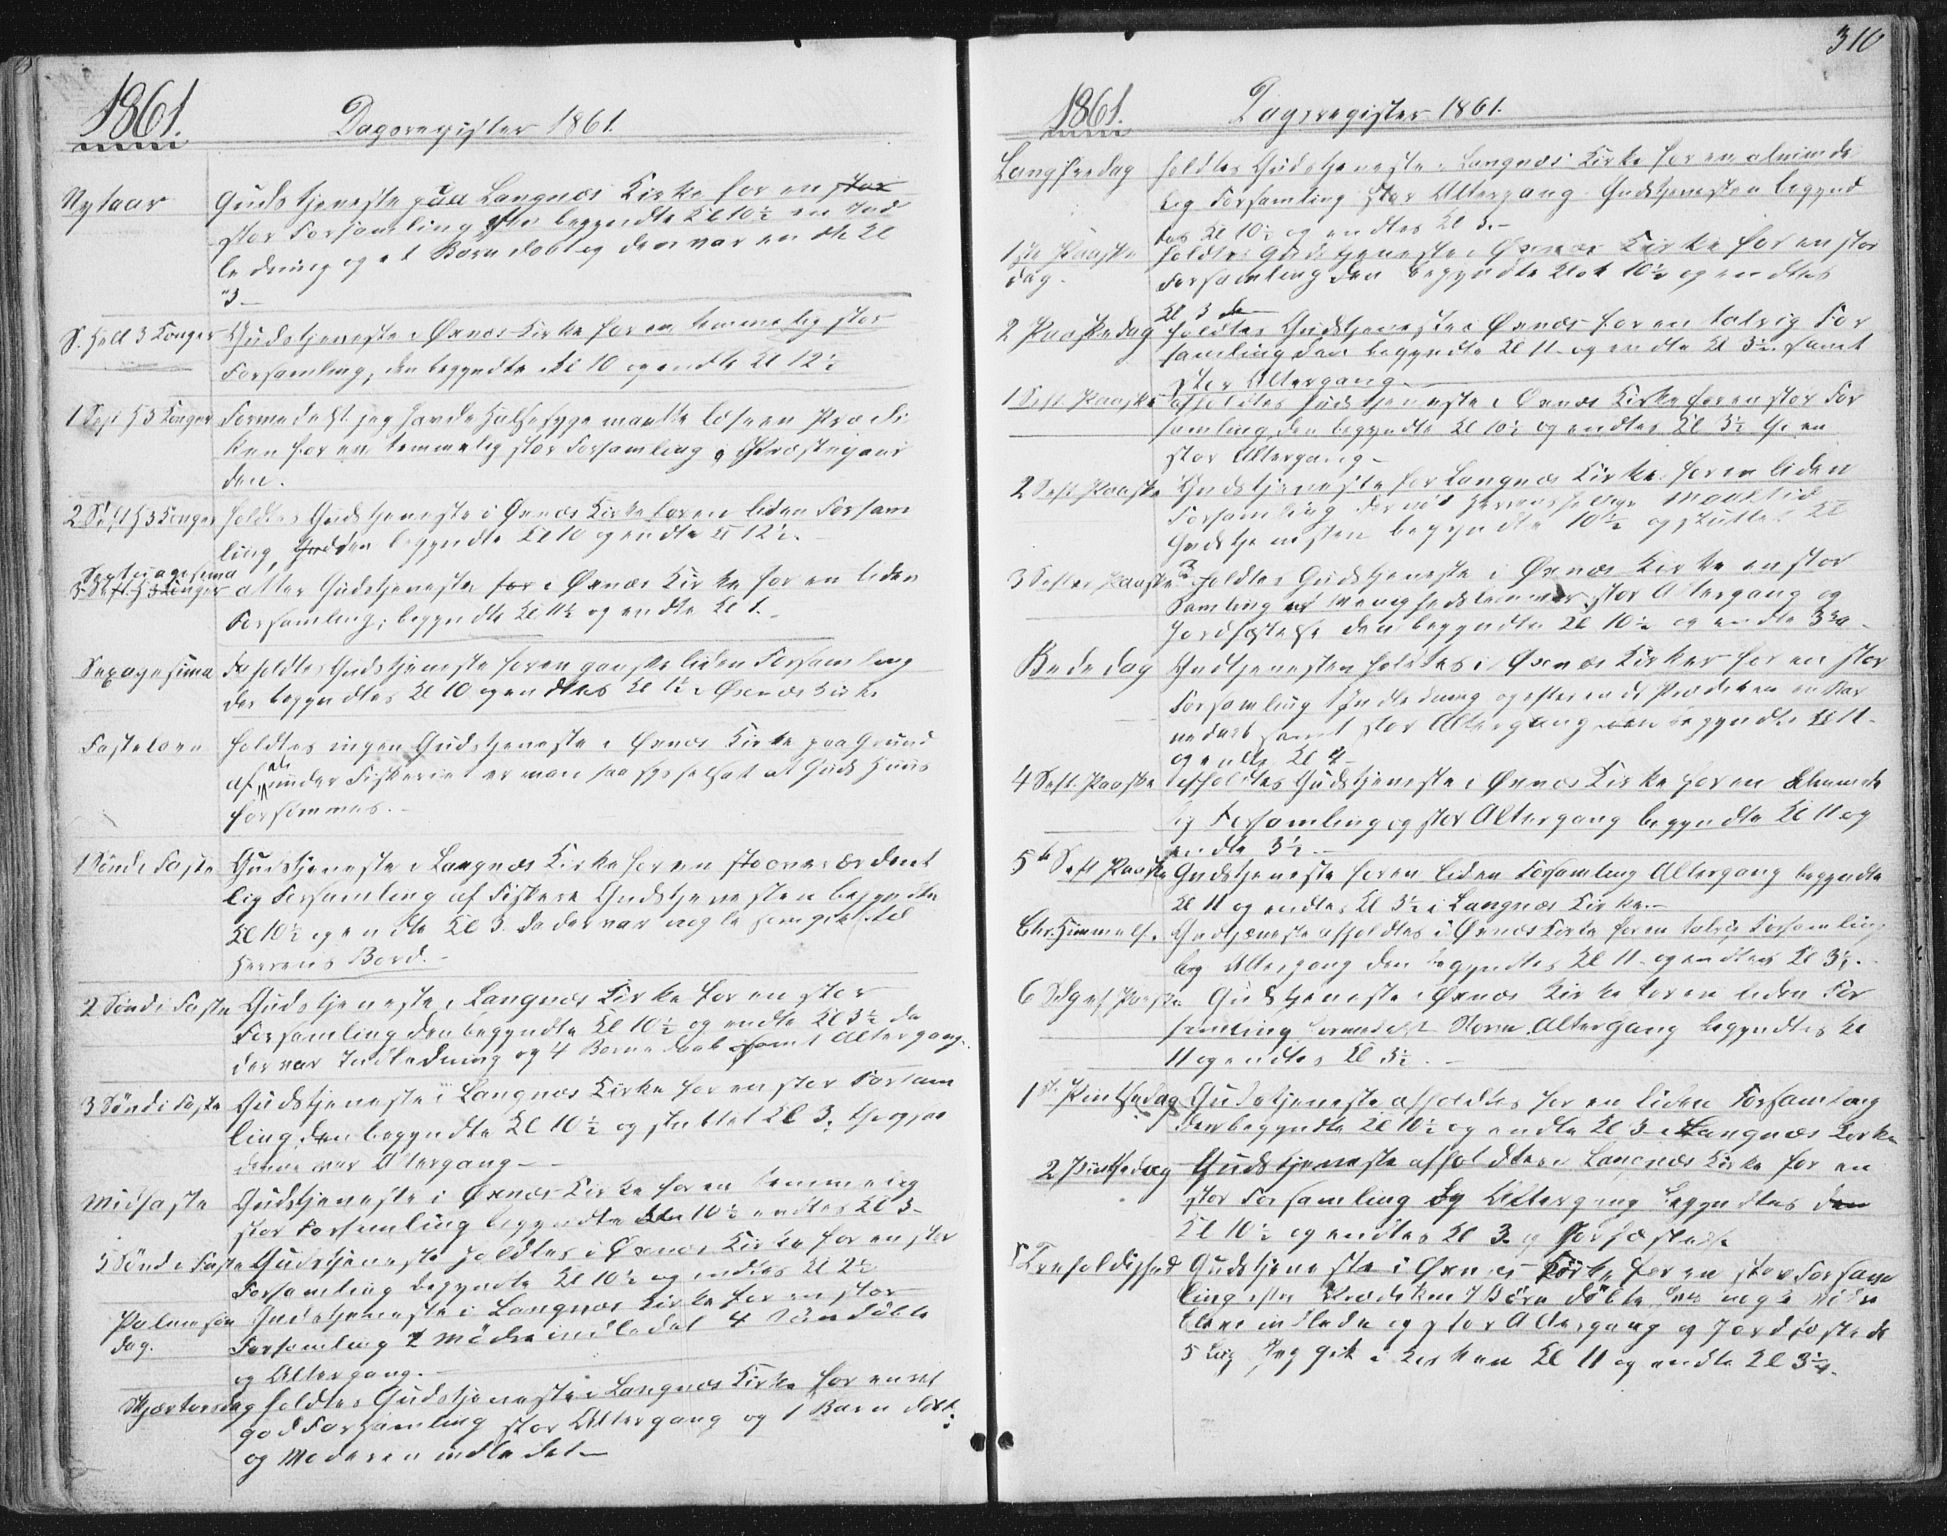 1861.
Dagsregister 1861.
Nytaar Gudstjeneste paa Langnæs Kirke for en stor
stor Forsamling begyndte Kl 10½ en Ind
ledning og et Barn døbt og den var endte Kl
"3 –
S. Hell 3 Konger Gudstjeneste i Øxnæs Kirke for en temmelig stor
Forsamling, den begyndte Kl 10 og endte Kl 12½
1 Seft H 3 Konger Formedelst jeg havde Halsesyge maatte læse en Prædi
ken for en temmelig stor Forsamling i Præstegaar
den.
2 Seft H 3 Konger holdtes Gudstjeneste i Øxnæs Kirke for en liden Forsam
ling, den begyndte Kl 10 og endte Kl 12½.
Septuagesima
3 Seft H 3 Konger atter Gudstjeneste for i Øxnæs Kirke for en liden
Forsamling; begyndte Kl 10½ og endte Kl 1. –
Sexagesima da holdtes Gudstjeneste for en ganske liden Forsamling
der begyndtes Kl 10 og endtes Kl 1½ i Øxnæs Kirke
Fastelavn holdtes ingen Gudstjeneste i Øxnæs Kirke paa Grund
af, at under Fiskeriet er man saa sysselsat at Guds Huus
forsømmes. –
1 Sønd i Faste Gudstjeneste i Langnæs Kirke for en overordent
lig Forsamling af Fiskere Gudstjenesten begyndte
Kl 10½ og endte Kl 3. da der var nogle som gik til
Herrens Bord. –
2 Sønd i Faste Gudstjeneste i Langnæs Kirke for en stor
Forsamling den begyndte Kl 10½ og endte Kl 3½ da
der var Indledning og 4 Barnedaab samt Altergang.
3 Sønd i Faste Gudstjeneste i Langnæs Kirke for en stor Forsam
ling den begyndte Kl 10½ og sluttet Kl 3.
var Altergang –
Midfaste Gudstjeneste i Øxnæs Kirke for en temmelig
stor Forsamling begyndte Kl 10½ endtes Kl 3 –
5 Sønd i Faste Gudstjeneste holdtes i Øxnæs Kirke for en stor
Forsamling begyndte Kl 10½ og endtes Kl 2½
Palmesøn Gudstjeneste i Langnæs Kirke for en stor
dag. Forsamling 2 Mødre indledet 4 Børn døbte
og Altergang. –
Skjærtorsdag holdtes Gudstjeneste i Langnæs Kirke for en ret
god Forsamling stor Altergang og 1 Barn døbt
og Moderen indledet –
310
1861.
Dagsregister 1861.
Langfredag holdtes Gudstjeneste i Langnæs Kirke for en alminde
lig Forsamling stor Altergang Gudstjenesten begynd
tes Kl 10½ og endtes Kl 3. –
1ste Paaske holdtes Gudstjeneste i Øxnæs Kirke for en stor
dag. Forsamling den begyndte Klok 10½ og endtes
Kl 3
2 Paaskedag holdtes Gudstjeneste i Øxnæs for en talrig For
samling den begyndte Kl 11 og endte Kl 3½ samt
stor Altergang –
1 Seft Paaske afholdtes Gudstjeneste i Øxnæs Kirke for en stor For
samling, den begyndte Kl 10½ og endtes Kl 3½ en
stor Altergang –
2 Seft Paaske Gudstjeneste for Langnæs Kirke for en liden
Forsamling Herrens hellige Maaltid
Gudstjenesten begyndte 10½ og sluttet Kl
3
3 Sefter Paaske Holdtes Gudstjeneste i Øxnæs Kirke en stor
Samling af Menighedslemmer stor Altergang og
Jordfæstelse den begyndte Kl 10½ og endte 3¾ –
Bededag Gudtjenesten holdtes i Øxnæs Kirke for en stor
Forsamling Indledning og efter endt Prædiken en Bar
nedaab samt stor Altergang begyndte Kl 11 –
og endte Kl 4 –
4 Seft. Paaske afholdtes Gudstjeneste i Øxnæs Kirke for en alminde
lig Forsamling og stor Altergang begyndte Kl 11 og
endte 3½. –
5te Seft Paaske Gudstjeneste for en liden Forsamling Altergang begyndte
Kl 11 og endtes Kl 3½ i Langnæs Kirke. –
Chr. Himmelf. Gudtjeneste afholdtes i Øxnæs Kirke for en talrig Forsamling
og Altergang den begyndtes Kl 11 og endtes Kl 3½. –
6 Sdg ef Paaske Gudstjeneste i Øxnæs Kirke for en liden For
samling formedelst Storm Altergang begyndtes Kl
11 og endtes Kl 3½. –
1ste Pintsedag Gudstjeneste afholdtes for en liden Forsamling
den begyndte Kl 10½ og endte Kl 3 i Langnæs Kirke
2 Pintsedag Gudstjeneste afholdtes i Langnæs Kirke for en
stor Forsamling og Altergang begyndtes den
Kl 10½ og endtes Kl 3 og Jordfæstelse
Trefoldighed Gudstjeneste i Øxnæs Kirke for en stor Forsam
ling efter Prædiken 7 Børn døbte
blev indledn og stor Altergang og Jordfæstede
5 Lig Jeg gik i Kirken Kl 11 og endte Kl 3½.